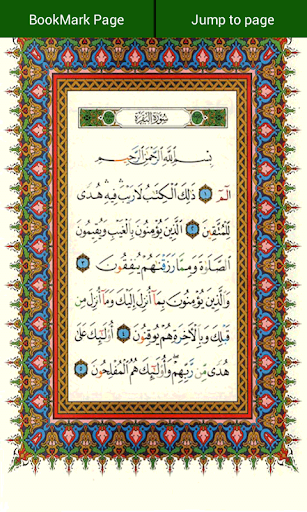 BookMark Page
Jump to page
سُورَةُ البَقَرَةِ
بِسْمِ اللَّهِ الرَّحْمَٰنِ الرَّحِيمِ
الٓمٓ ١ ذَٰلِكَ الْكِتَٰبُ لَا رَيْبَ فِيهِ هُدًى
لِّلْمُتَّقِينَ ٢ الَّذِينَ يُؤْمِنُونَ بِالْغَيْبِ وَيُقِيمُونَ
الصَّلَوٰةَ وَمِمَّا رَزَقْنَٰهُمْ يُنفِقُونَ ٣
وَالَّذِينَ يُؤْمِنُونَ بِمَآ أُنزِلَ إِلَيْكَ وَمَآ أُنزِلَ مِن
قَبْلِكَ وَبِالْءَاخِرَةِ هُمْ يُوقِنُونَ ٤ أُو۟لَٰٓئِكَ عَلَىٰ
هُدًى مِّن رَّبِّهِمْ وَأُو۟لَٰٓئِكَ هُمُ الْمُفْلِحُونَ ٥